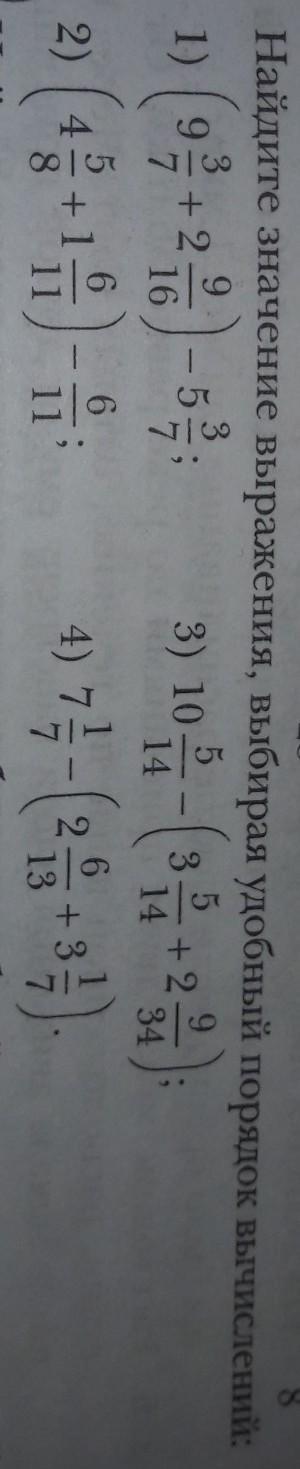 8
Найдите значение выражения, выбирая удобный порядок вычислений:
1) (9 3/7 + 2 9/16) − 5 3/7; 3) 10 5/14 − (3 5/14 + 2 9/34);
2) (4 5/8 + 1 6/11) − 6/11; 4) 7 1/7 − (2 6/13 + 3 1/7).